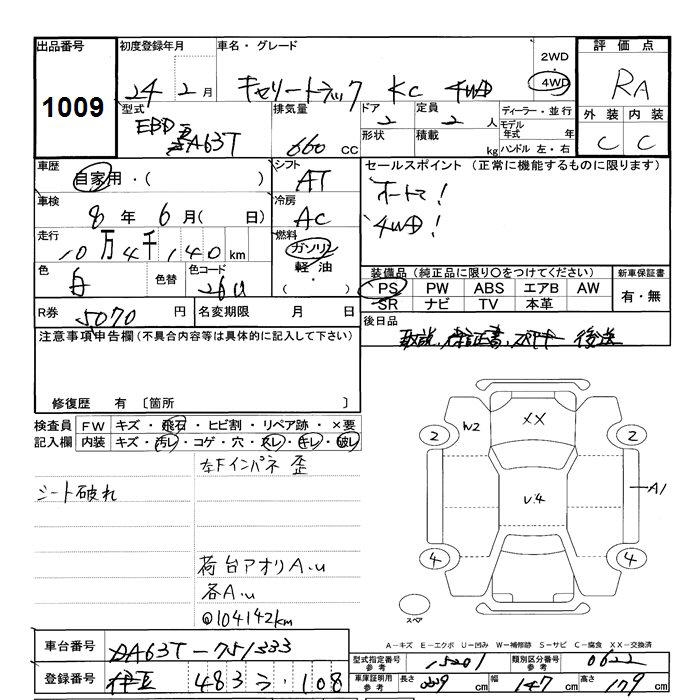 出品番号
1009
初度登録年月
24年 2月
車名・グレード
キャリートラック KC 4WD
2WD
4WD
評価点
RA
外装 内装
C C
型式
EBD DA63T
排気量
660 CC
ドア
2
定員
2 人
形状
積載
kg
ディーラー・並行
モデル年式 年
ハンドル 左・右
車歴
自家用・( )
シフト
AT
セールスポイント (正常に機能するものに限ります)
オートマ!
4WD!
車検
8年 6月( 日)
冷房
AC
走行
10万4千140km
燃料
ガソリン
軽油
( )
色
白
色替
色コード
26U
装備品 (純正品に限り〇をつけてください)
新車保証書
PS PW ABS エアB AW
SR ナビ TV 本革
有・無
R券 5070円
名変期限 月 日
後日品
取説、保証書、スペアキー 後送
注意事項申告欄(不具合内容等は具体的に記入して下さい)
修復歴 有 〔箇所 〕
検査員記入欄
FW キズ・飛石・ヒビ割・リペア跡・×要
内装 キズ・汚レ・コゲ・穴・スレ・キレ・破レ
左Fインパネ 歪
シート破れ
荷台アオリA.u
各A.u
@104142km
2 W2 XX 2
U.4
A1
4 4
スペア
A-キズ E-エクボ U-凹み W-補修跡 S-サビ C-腐食 XX-交換済
車台番号
DA63T-751333
型式指定番号 参考
15201
類別区分番号 参考
0622
登録番号
伊豆 483 う 108
車庫証明用 参考
長さ 339cm 幅 147cm 高さ 179cm